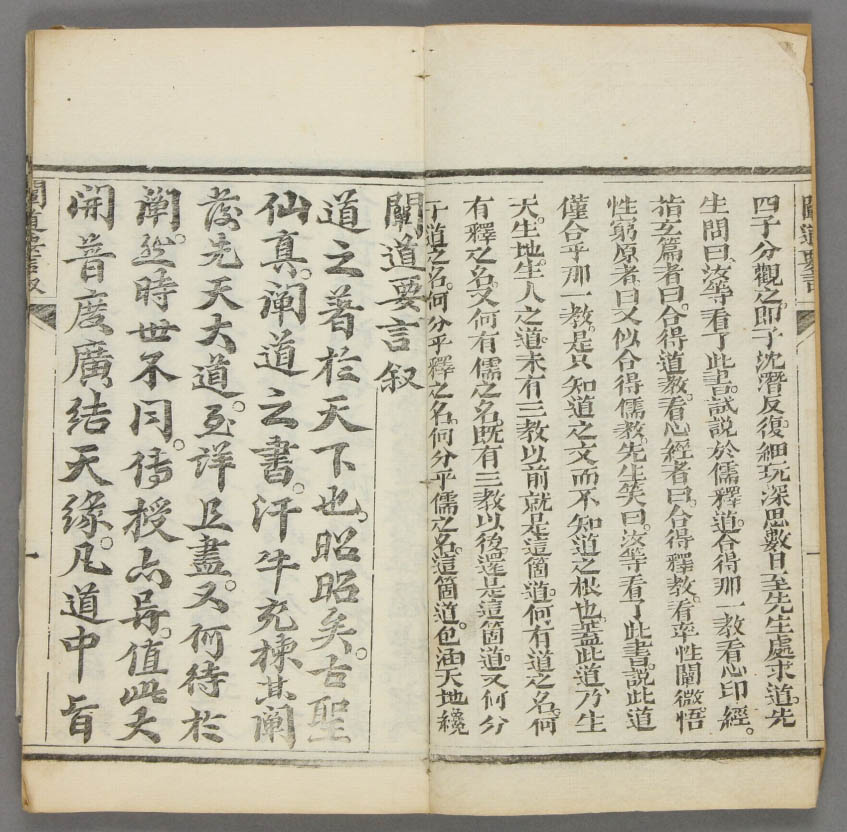 闡道要言
四子分觀之。即子沈潛反復。細玩深思。數日至先生處求道。先
生問曰。汝等看了此書。試說於儒釋道。合得那一教。看心印經。
指玄篇者曰。合得道教。看心經者曰。合得釋教。看率性闡微。悟
性窮原者。曰又似合得儒教。先生笑曰。汝等看了此書。說此道
僅合乎那一教。是只知道之文而不知道之根也。蓋此道乃生
天。生地。生人之道。未有三教以前。就是這箇道。何有道之名。何
有釋之名。又何有儒之名。既有三教以後。還是這箇道。又何分
于道之名。何分乎釋之名。何分乎儒之名。這箇道。包涵天地。纔
闡道要言叙
道之著於天下也。昭昭矣。古聖
仙真。闡道之書。汗牛充棟。其闡
發先天大道。至詳且盡。又何待於
闡。然時世不同。傳授亦異。值此大
開普度。廣結天緣。凡道中旨
闡道要言叙
一